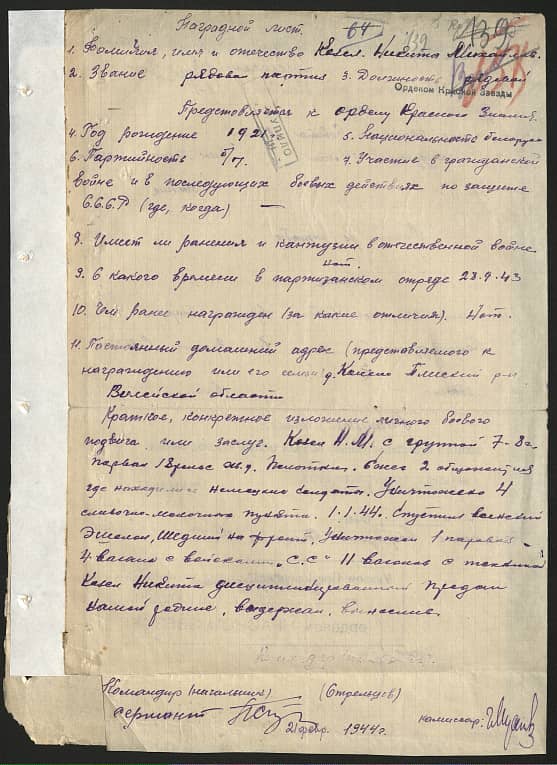 Наградной лист.
64
132
139
1. Фамилия, имя и отчество Козел Никита Михайлов.
2. Звание рядовой партиз 3. Должность рядовой
Орденом Красной Звезды
Представляется к ордену Красного Знамя.
4. Год рождение 1921 5. Национальность белорус
6. Партийность б/п. 7. Участие в гражданской
войне и в последующих боевых действиях по защите
С.С.С.Р (где, когда) —
8. Имеет ли ранения и контузии в отечественной войне
нет.
9. С какого времени в партизанском отряде 28.9.43
10. Чем ранее награжден (за какие отличия). Нет.
11. Постоянный домашний адрес (представляемого к
награждению или его семьи д. Плисский р-н
Вилейской области
Краткое, конкретное изложение личного боевого
подвига или заслуг. Козел Н.М. с группой 7-8г
ж.д. 2
где немецкие солдаты. Уничтожено 4
сливочно-молочных пункта. 1.1.44. Спустил воинский
Эшелон, Шедший на фронт, Уничтожен 1 паровоз
4 вагона с войсками „С.С" 11 вагонов с техникой
Козел Никита дисциплинированный Предан
нашей родине, выдержан, вынослив.
Командир (начальник) (Стрельцов)
сержант
21 февр. 1944 г.
комиссар: